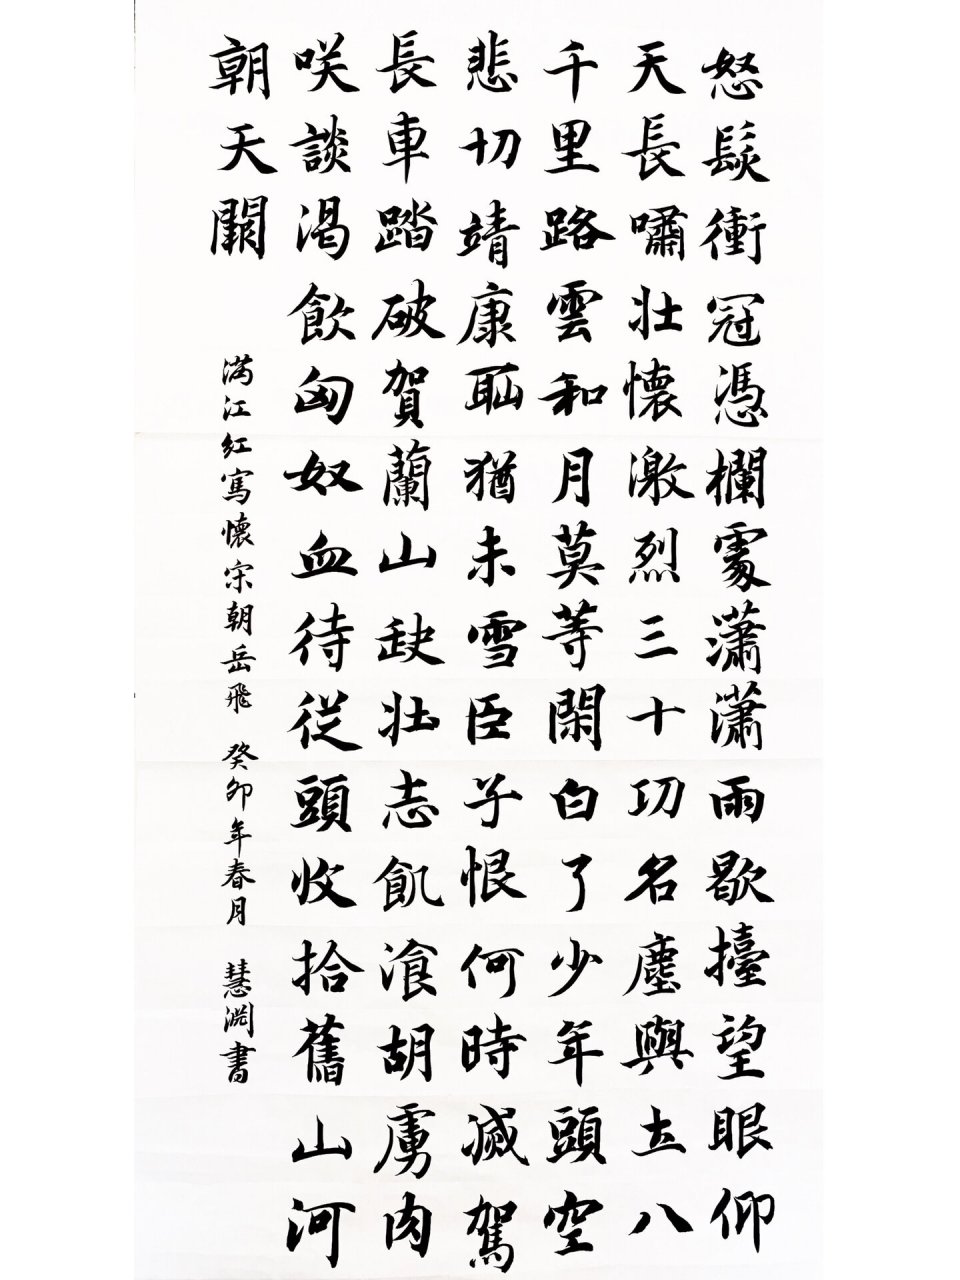 怒髮衝冠憑欄處瀟瀟雨歇擡望眼仰
天長嘯壯懷激烈三十功名塵與土八
千里路雲和月莫等閑白了少年頭空
悲切靖康耻猶未雪臣子恨何時滅駕
長車踏破賀蘭山缺壯志飢湌胡虜肉
咲談渴飲匈奴血待從頭收拾舊山河
朝天闕
满江红寫懷宋朝岳飛 癸卯年春月 慧渊書